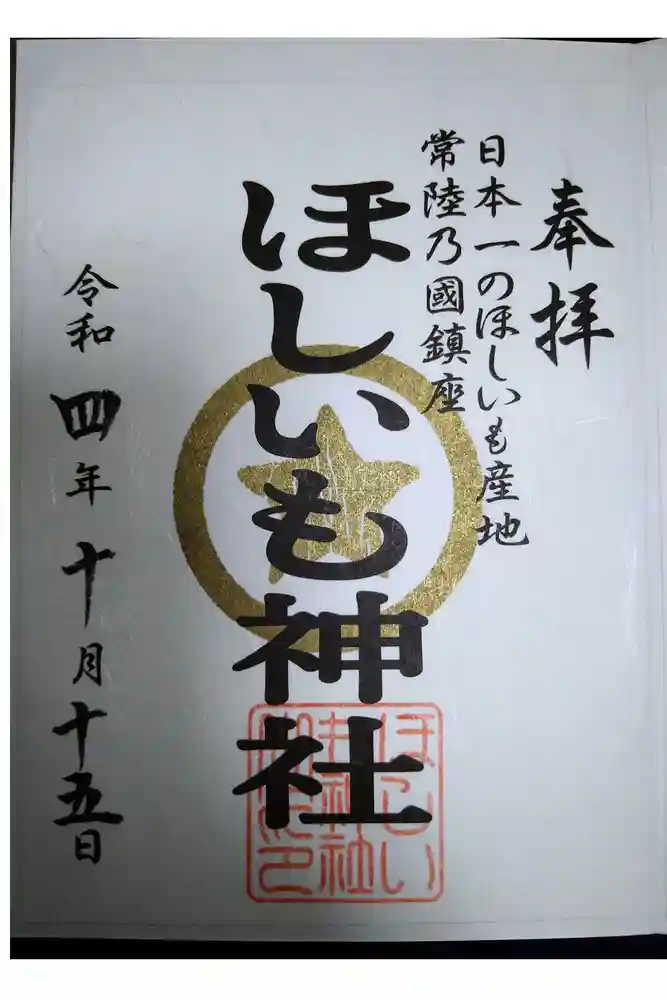 奉拝
日本一のほしいも産地
常陸乃國鎮座
ほしいも神社
令和四年十月十五日
ほしい
も神社
御朱印